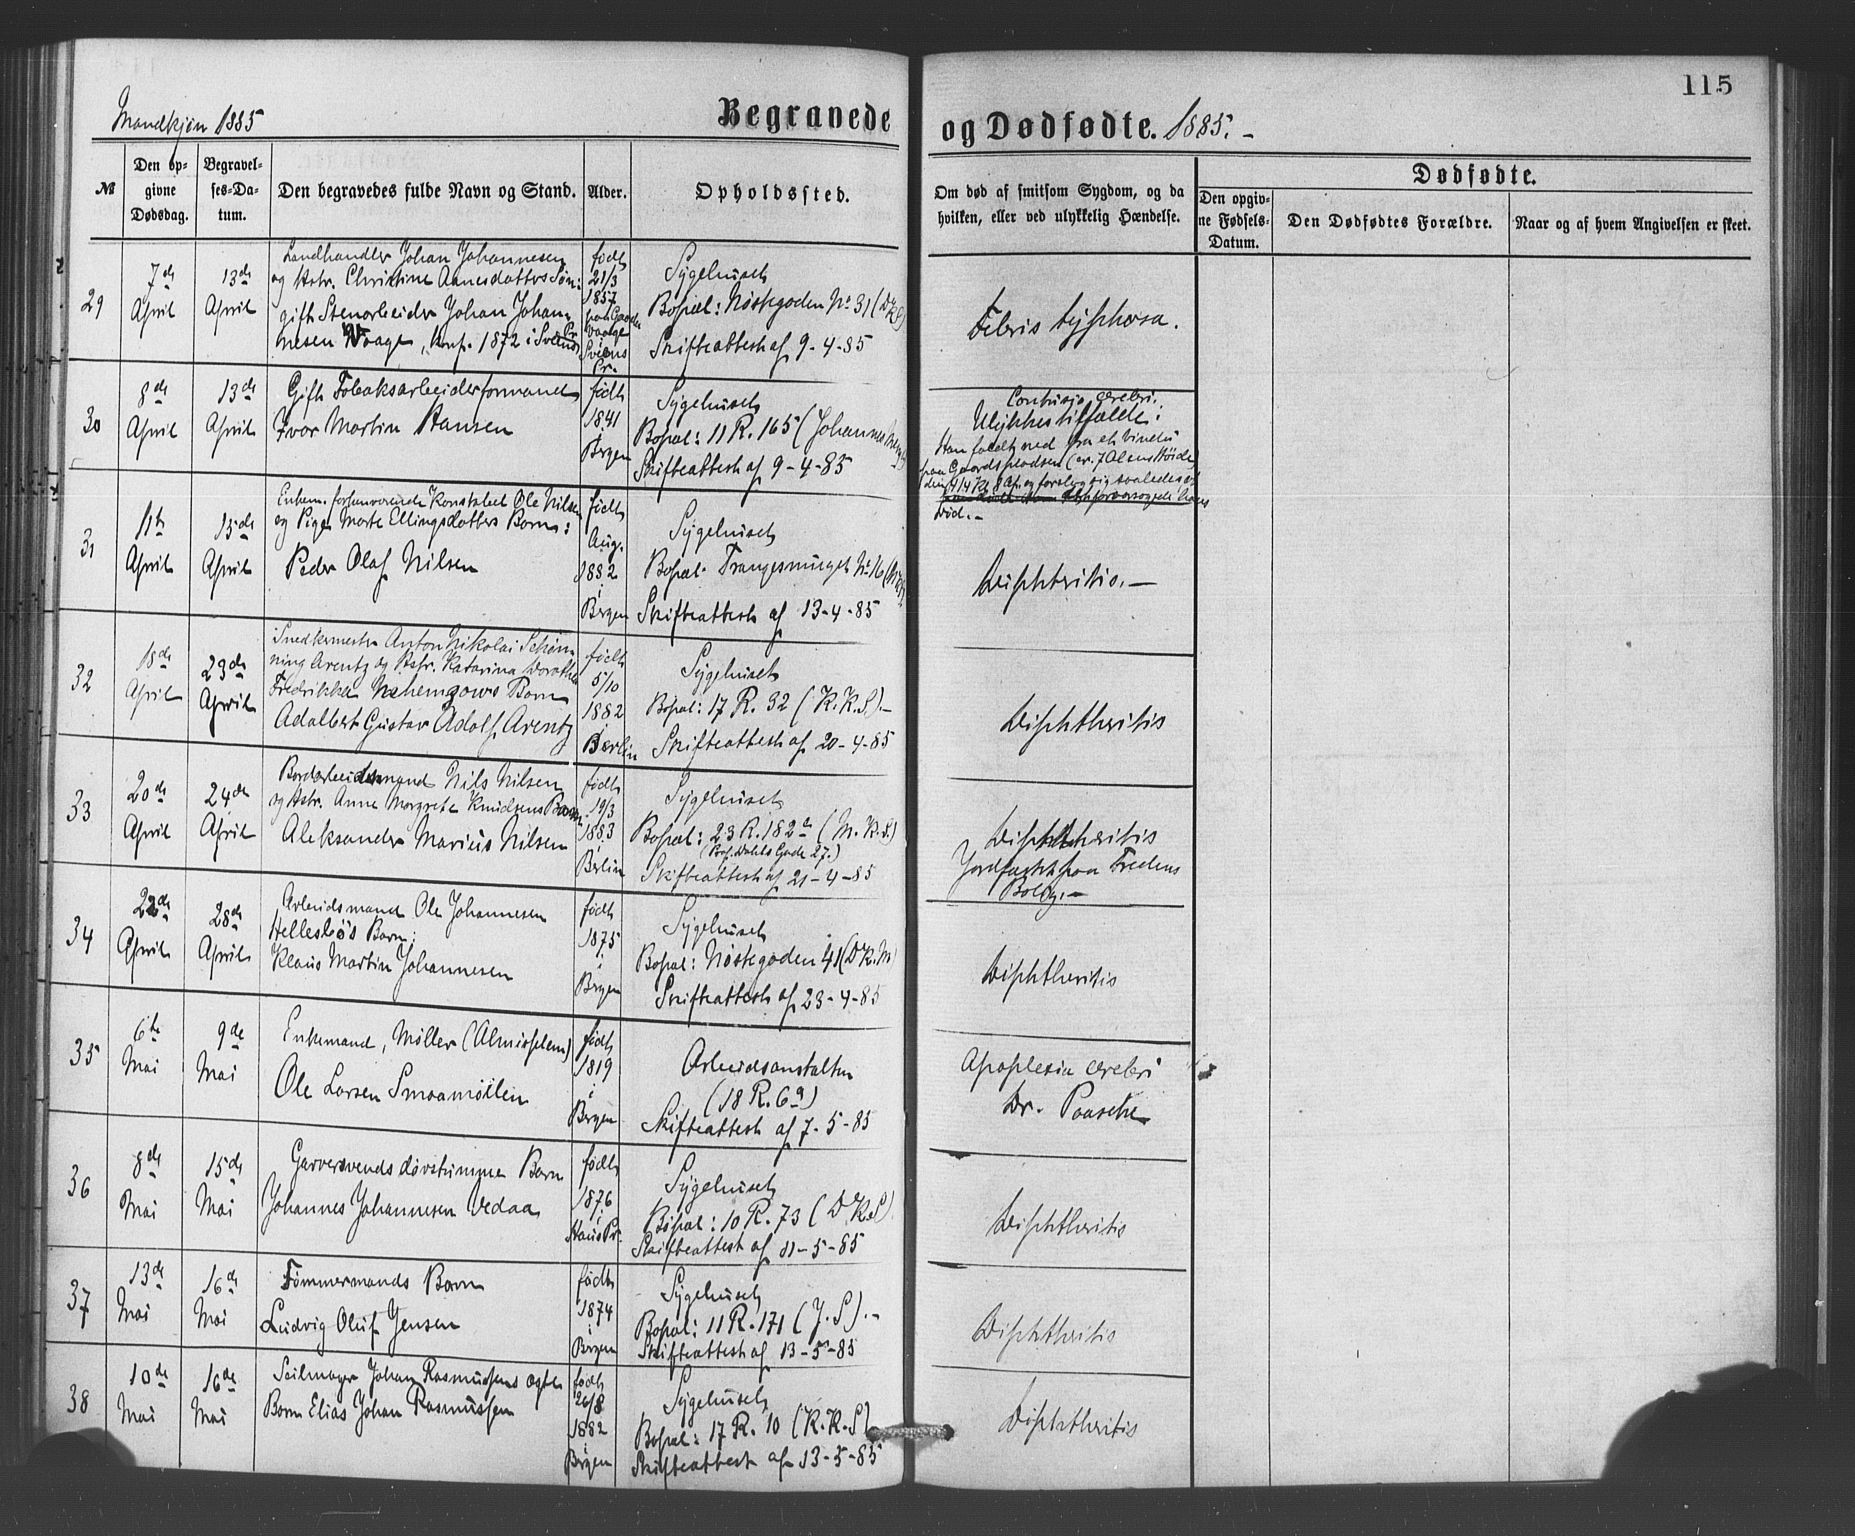 115
Mandkjøn 1885
Begravede
og Dødfødte. 1885. -
№
Den op-
givne
Dødsdag.
Begravel-
ses-Da-
tum.
Den begravedes fulde Navn og Stand.
Alder.
Opholdssted.
Om død af smitsom Sygdom, og da
hvilken, eller ved ulykkelig Hændelse.
Dødfødte.
Den opgiv-
ne Fødsels-
Datum.
Den Dødfødtes Forældre.
Naar og af hvem Angivelsen er skeet.
29
7de
April
13de
April
Landhandler Johan Johannesen
og Hstr. Christine Aanesdatters Søn:
gift Stenarbeider Johan Johan-
nesen Waage, konf. 1872 i
født
21/3
1857
Pr.
Sygehuset
Bopæl: Nøstegaden No 31 (
Skifteattest af 9-4-85
Febris typhosa.
30
8de
April
13de
April
Gift Tobaksarbeiderformand
Ivar Martin Hansen
født
1841
Bergen
Sygehuset
Bopæl: 11 R. 165 (Johannes
Skifteattest af 9-4-85
Contusio cerebri.
Ulykkestilfælde:
Han faldt ned fra et Vindu
paa Gaardspladsen (cr. 7 Alens Høide)
død. -
31
11te
April
15de
April
Enkem. forhenværende Konstabel Ole Nilsen
og Pige Marte Ellingsdatters Barn:
Peder Olaf Nilsen
født
Aug.
1882
i
Bergen
Sygehuset
Bopæl: Trangesmuget No 16
Skifteattest af 13-4-85
Diphteritis. -
32
18de
April
23de
April
Snedkermester Anton Nikolai Schøn-
ning Arentz og Hstr. Katarina Dorothea
Fredrikke Barn
Adalbert Gustav Adolf Arentz
født
5/10
1882
i
Berlin
Sygehuset
Bopæl: 17 R. 32 (K.K.S.)-
Skifteattest af 20-4-85
Diphtheritis
33
20de
April
24de
April
Bordarbeidsmand Nils Nilsen
og Hstr. Anne Margrete Knudsens Barn
Aleksander Marius Nilsen
født
19/3
1883
i
Berlin
Sygehuset
Bopæl: 23 R. 182 (M.K.S.)
Gade 27.)
Skifteattest af 21-4-85
Diphtheritis
Jordfæstet paa Fredens
Bolig. -
34
22de
April
28de
April
Arbeidsmand Ole Johannesen
Hellesbøs Barn:
Klaus Martin Johannesen
født
1875
i
Bergen
Sygehuset
Bopæl: Nøstegaden 41 (D.K.M)
Skifteattest af 23-4-85
Diphtheritis
35
6te
Mai
9de
Mai
Enkemand, Møller (Almisselem)
Ole Larsen Smaamøllen
født
1819
i
Bergen
Arbeidsanstalten
(18 R. 6a)
Skifteattest af 7-5-85
Apoplexia cerebri
Dr. Paasche
36
8de
Mai
15de
Mai
Garversvends døvstumme Barn
Johannes Johannesen Vedaa
født
1876
i
Haus Pr.
Sygehuset
Bopæl: 10 R. 73 (D.K.S)
Skifteattest af 11-5-85
Diphtheritis
37
13de
Mai
16de
Mai
Tømmermands Barn
Ludvig Oluf Jensen
født
1874
i
Bergen
Sygehuset
Bopæl: 11 R. 171 (J.S). -
Skifteattest af 13-5-85
Diphtheritis
38
10de
Mai
16de
Mai
Seilmager Johan Rasmussens ægte
Barn Elias Johan Rasmussen
født
26/8
1882
i
Bergen
Sygehuset
Bopæl: 17 R. 10 (K.K.S)
Skifteattest af 13-5-85
Diphtheritis